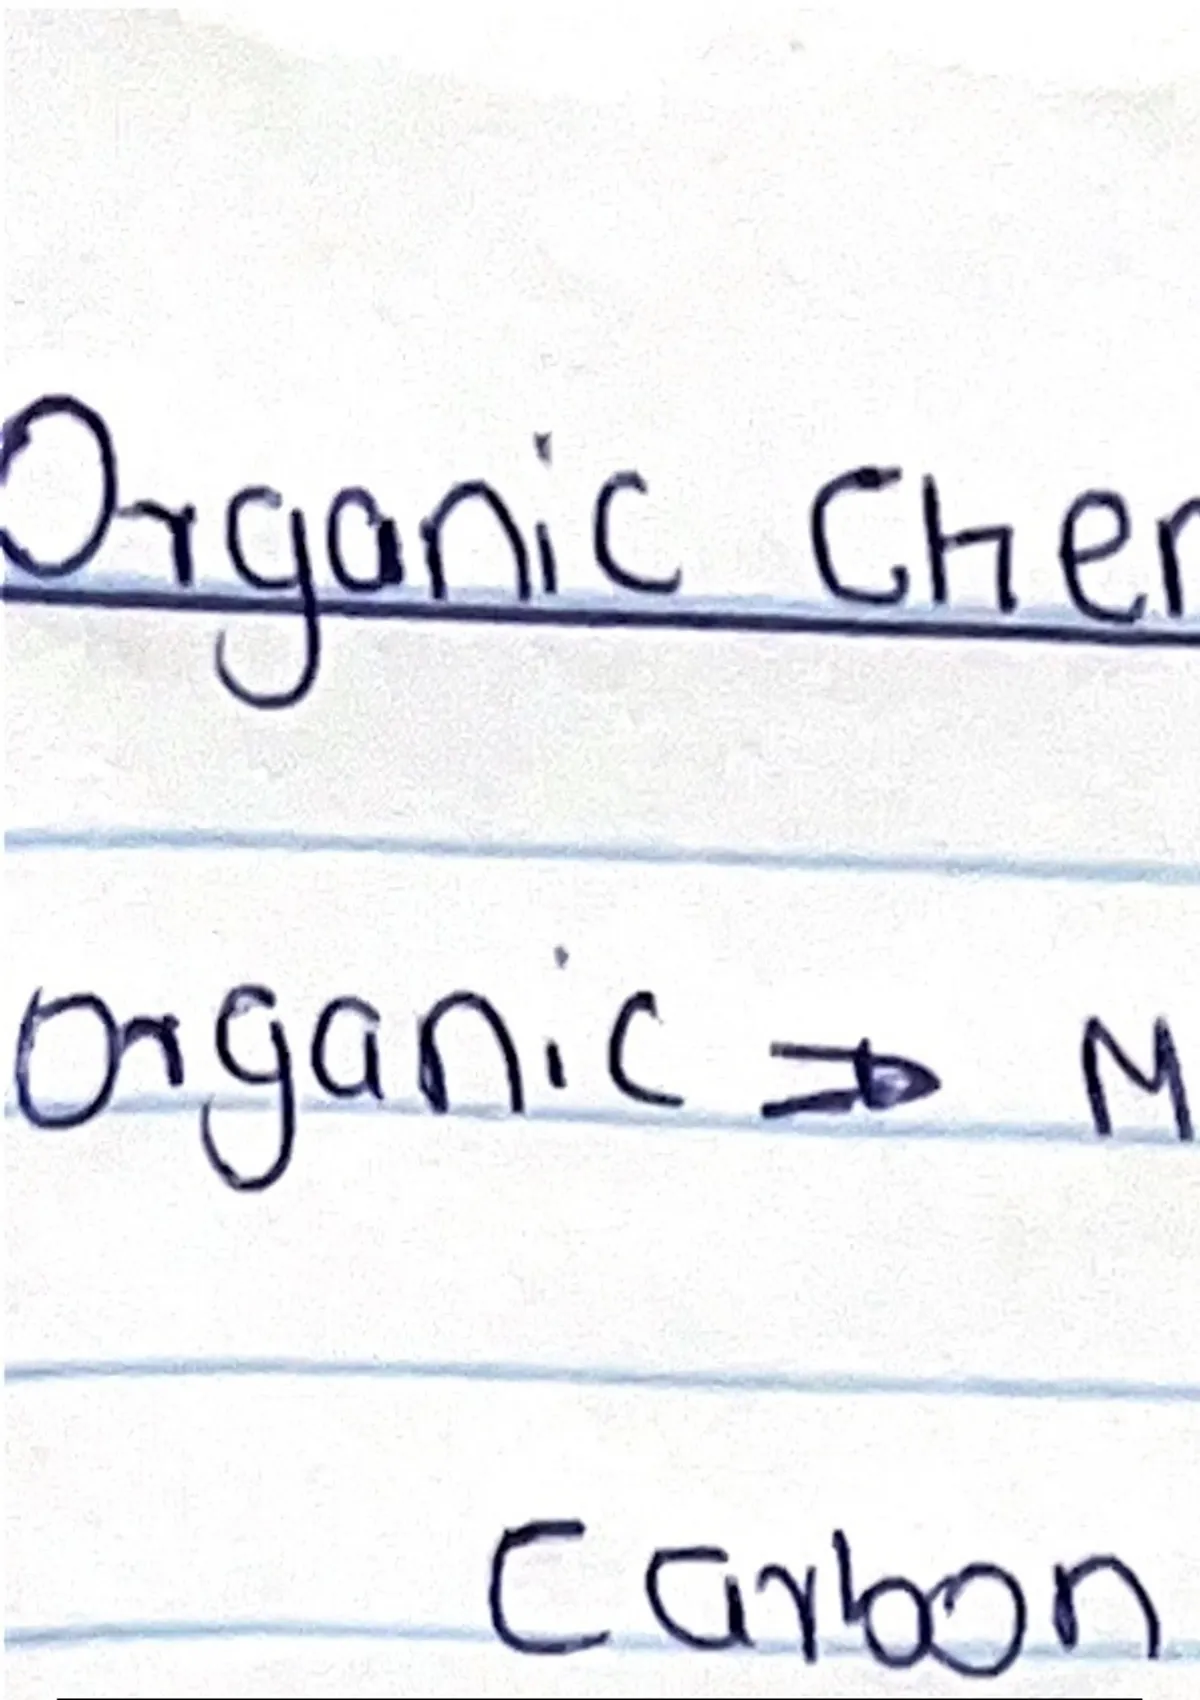 Organic Chem
Organic ⇒ M
Carbon